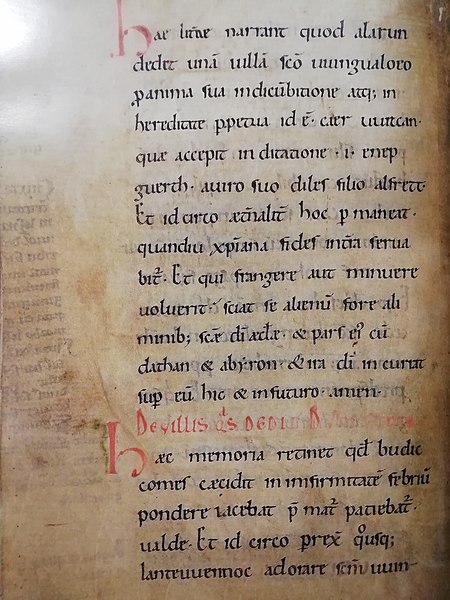 hae litt̄ae narrant quod alarun
dedet unā uillā sc̄o uuingualoeo
ꝓ anima sua in dicūbitione atq; in
hereditate ꝑpetua id ē· caer uuitcan·
quae accepit in ditatione ·i· enep
guerth· auiro suo diles filio alfrett·
Et id circo æt̄nalit̄ hoc ꝑmaneat·
quandiu xp̄iana fides int̄ra serua
bit᷑· Et qui frangere aut minuere
uoluerit· sciat se alienū fore ali
minib; sc̄æ dī æcl̄æ· & pars eꝰ cū
dathan & abyron & ira dī incurrat
suꝑ eū hic & in futuro amen·
De villis q̄s dedi
hæc memoria retinet qd̄ budic
comes cæcidit in infirmitatē febriū
pondere iacebat p̄ mat᷑ patiebat᷑·
ualde· Et id circo ꝑrex̄ q°usq;
lanteuuennoc adorare sc̄m uuin-